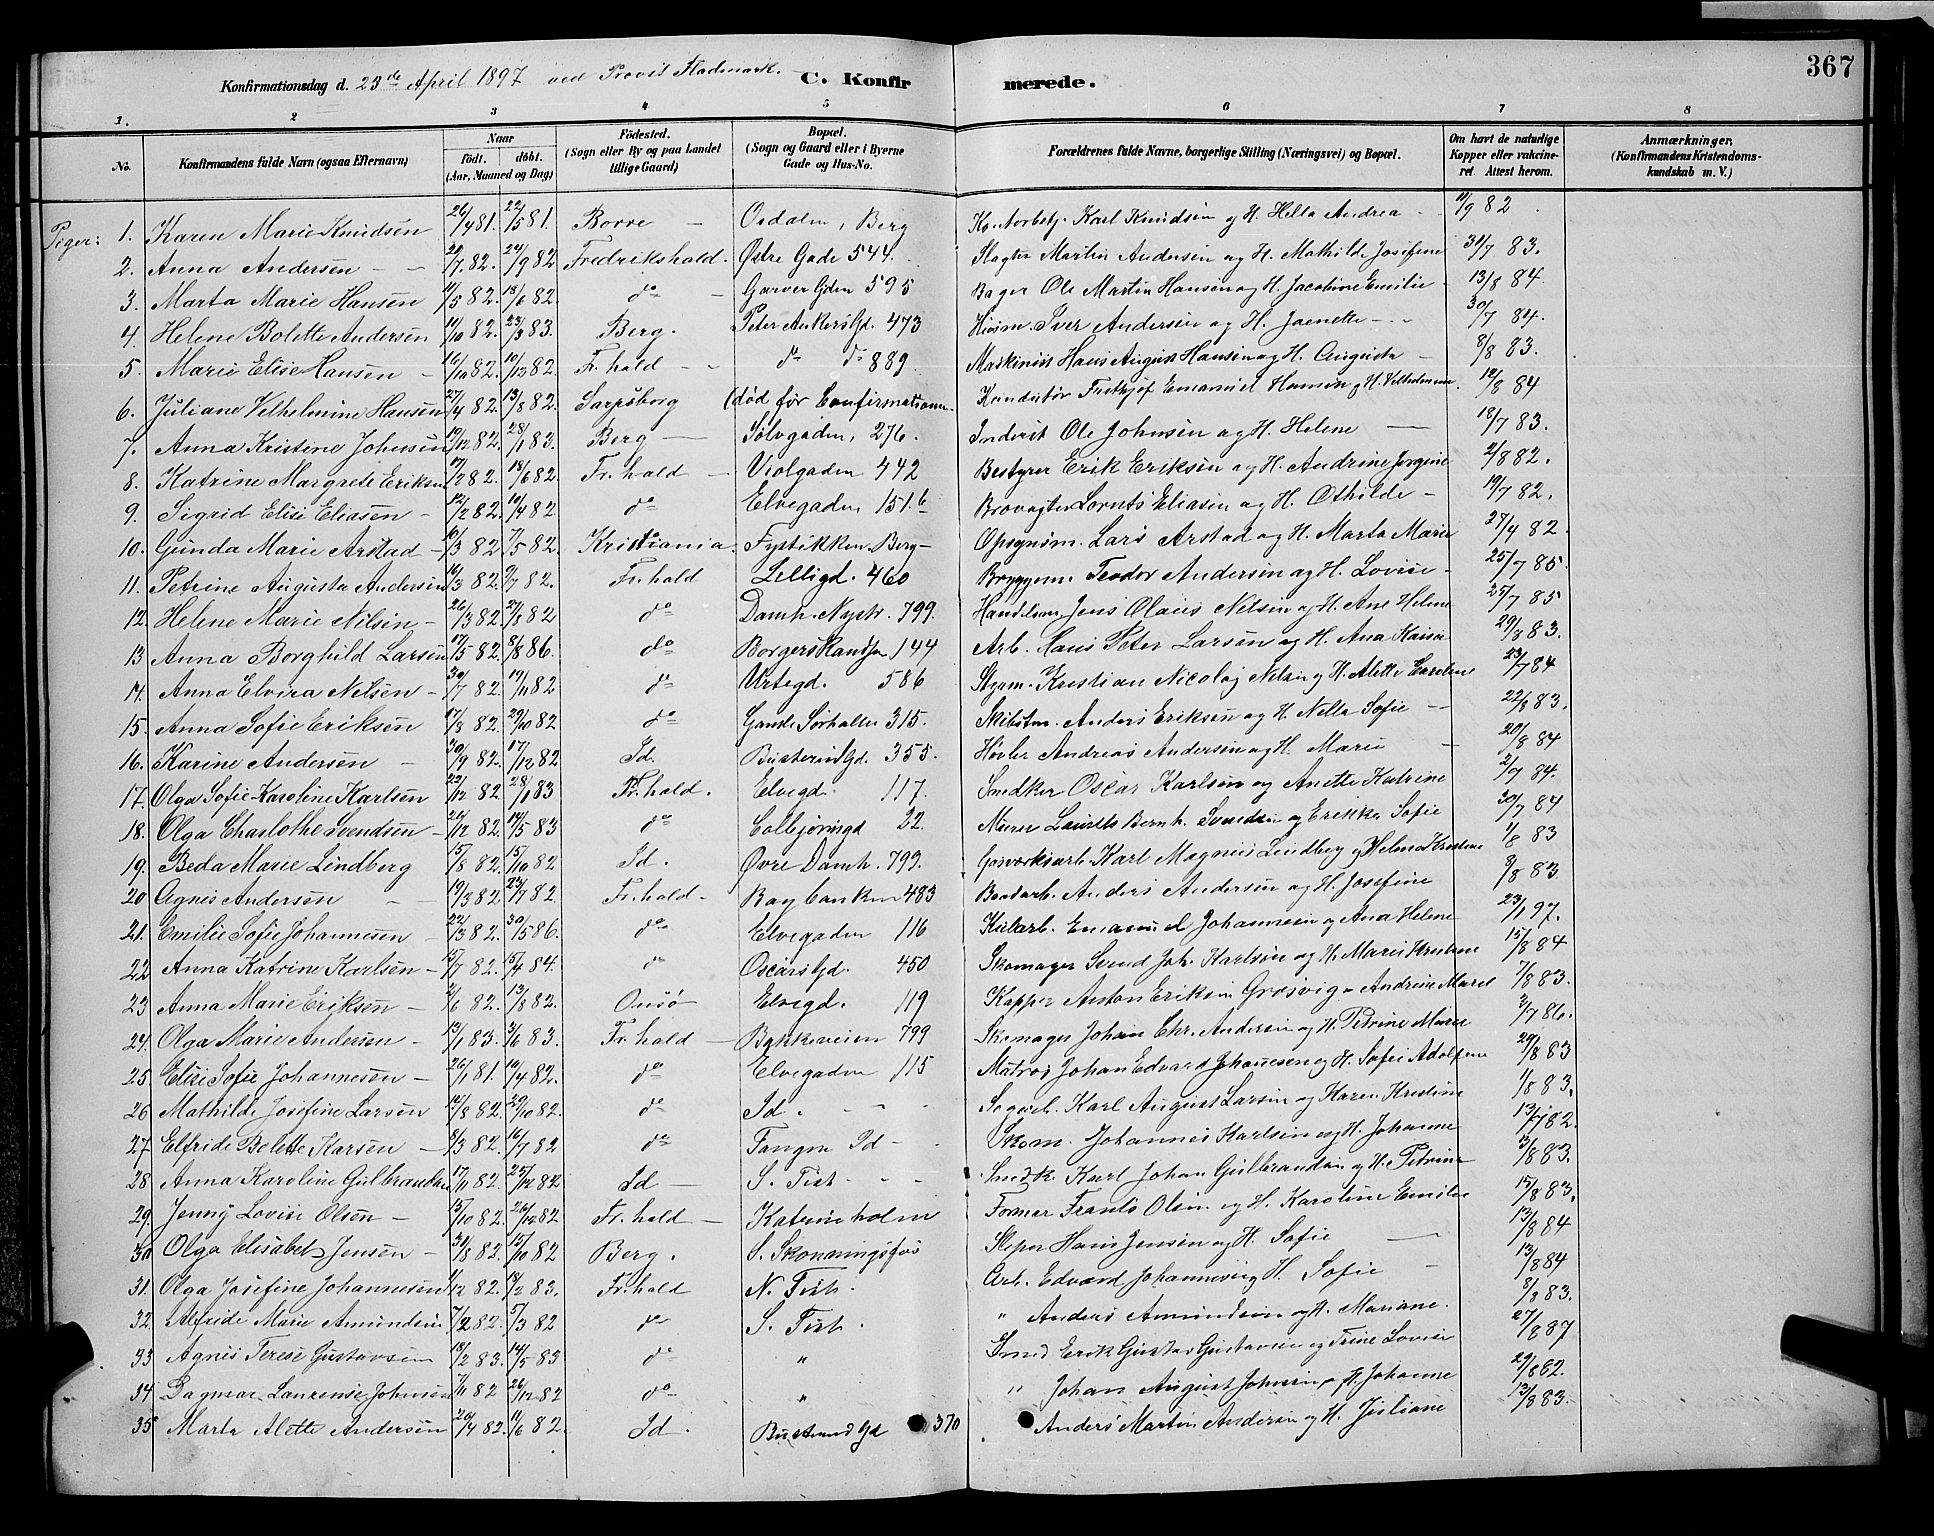 367
Konfirmationsdag d. 23de April 1897 ved Provst Hadmark. C. Konfirmerede.
1. 2 3 4 5 6 7 8
No. Konfirmandens fulde Navn (ogsaa Efternavn) Naar födt. döbt. (Aar, Maaned og Dag) Födested. (Sogn eller By og paa Landet tillige Gaard) Bopæl. (Sogn og Gaard eller i Byerne Gade og Hus-No. Forældrenes fulde Navne, borgerlige Stilling (Næringsvei) og Bopæl. Om havt de naturlige Kopper eller vakcineret. Attest herom. Anmærkninger. (Konfirmandens Kristendomskundskab m. V.)
Piger: 1. Karen Marie Knudsen 26/4 81. 22/5 81. Borre Berg Karl Knudsen og H. Hella Andrea 9 82
2. Anna Andersen 7 82. 9 82 Fredrikshald. Østre Gade 544. Slagter Martin Andersen og H. Mathilde Josefine 31/7 83.
3. Marta Marie Hansen 5 82. 6 82 do Garver Gden 595 Bager Ole Martin Hansen og H. Jacobine Emilie 13/8 84.
4. Helene Bolette Andersen 10 82. 23/3 83. Berg. Peter Ankers Gd. 473 Iver Andersen og H. Jaenette 30/7 84.
5. Marie Elise Hansen 10 82. 12 82. Fr.hald do do 889. Maskinist Hans August Hansen og H. Augusta 8/8 83.
6. Juliane Vilhelmine Hansen 27/4 82. 13/8 82. Sarpsborg (død før Confirmationen. Konduktør Frithjof Emanuel Hansen og H. Vilhelmine 8 84
7. Anna Kristine Johnsen 12 82. 28/1 83. Berg Sølvgaden, 276. Inderst Ole Johnsen og H. Helene 18/7 83.
8. Katrine Margrete Eriksen 2 82. 18/6 82. Fr.hald Violgaden 442 Bestyrer Erik Eriksen og H. Andrine Jorgine 2/8 82.
9. Sigrid Elise Eliasen 12/2 82. 10/4 82 do Elvegaden 151.b Brovagter Lornts Eliasen og H. Othilde 19/7 82.
10. Gunda Marie Arstad 3 82 7/5 82. Kristiania. Fystikken Berg Opsynsm. Lars Arstad og H. Marta Marie 27/4 82.
11. Petrine Augusta Andersen 3 82. 7 82. Fr.hald Lilligd. 460 Bryggem. Teodor Andersen og H. Lovise 25/7 85.
12. Helene Marie Nilsen 26/3 82. 27/8 82 do Damh. Nystr. 799. Handelsm Jens Olaus Nelsen og H. Ane Helene 25/7 85
13 Anna Borghild Larsen 17/5 82. 8/8 86. do Borgerskandsen 144 Arb. Hans Peter Larsen og H. Ana Kaisa 29/8 83.
14. Anna Elvira Nilsen 30/7 82. 19/11 82 do Urtegd. 586 Styrm. Kristian Nicolaj Nelsen og H. Alette Caroline 23/7 84
15. Anna Sofie Eriksen 17/8 82. 29/10 82 do Gamle Sørhallen 315. Skibstm. Anders Eriksen og H. Nella Sofie 22/8 83.
16. Karine Andersen 30/9 82. 17/12 82 Id. Busterud Gd. 355. Høvler Andreas Andersen og H. Marie 20/8 84
17. Olga Sofie Karoline Karlsen 22/12 82 28/1 83 Fr.hald. Elvegd. 117. Snedker Oscar Karlsen og Anette Katrine 2/7 84.
18. Olga Charlothe Svendsen 12 82. 14/5 83 do Colbjørnsgd 22. Murer Laurits Bernh. Svendsen og Erikka Sofie 30/7 84
19. Beda Marie Lindberg 15/8 82. 15/10 82 Id. Øvre Damh. 799. Gasværksarb. Karl Magnus Lindberg og Helene Kristine 1/8 83
20 Agnes Andersen 19/3 82 23/7 82. Fr.hald. Baybanken 483 Anders Andersen og H. Josefine 9/8 83.
21. Emilie Sofie Johannesen 22/3 82. 30/5 86. do Elvegaden 116 Emanuel Johannesen og Ana Helene 23/1 97.
22 Anna Katrine Karlsen 7 82. 15/4 84. do Oscars Gd. 450 Skomager Svend Joh. Karlsen og H. Marie Kristine 15/8 84
23 Anna Marie Eriksen 6 82. 13/8 82. Onsø Elvegd. 119 Anton Eriksen Grosvig Andrine Marie 7/8 83.
24. Olga Marie Andersen 13/1 83. 3/6 83. Fr.hald Bakkeveien 799 Skomager Johan Chr. Andersen og H. Petrine Marie 3/7 86.
25. Elise Sofie Johannesen 26/1 81. 10/4 82. do Elvegaden 115 Matros Johan Edvard Johanesen og H. Sofie Adolfine 29/8 83
26 Mathilde Josefine Larsen 12/8 82. 29/10 82. do Id. Karl August Larsen og Karen Kristine 1/8 83.
27 Elfride Bolette Karsen 3 82. 16/7 82 do Tangen Id Skom. Johannes Karlsen og H. Johanne 82.
28 Anna Karoline Gulbrandsen 17/11 82. 12 82 Id S. Tist Snedk. Karl Johan Gulbrandsen og H. Petrine 3/8 83.
29. Jenny Lovise Olsen 15/10 82. 26/12 82 Fr.hald Katrineholm Former Frants Olsen og H. Karoline Emilie 15/8 83.
30 Olga Elisabet Jensen 31/8 82. 15/10 82 Berg. S. Skonningsfos Sliper Hans Jensen og H. Sofie 13/8 84
31. Olga Josefine Johannesen 12 82. 18/2 83. Fr.hald N. Tist. Arb. Edvard Johannesen og H. Sofie 13/8 84
32 Alfride Marie Amundsen 7/2 82. 5/3 82 do S. Tist. " Anders Amundsen og H. Mariane. 8/8 83.
33 Agnes Terese Gustavsen 18/2 83. 14/5 83 do " Smed Erik Gustav Gustavsen og Trine Lovise 27/8 87
34 Dagmar Laurense Johnsen 7/11 82 26/12 82 do " " Johan August Johnsen og H. Johanne 29/8 82.
35 Marta Alette Andersen 20/4 82. 11/6 82. Id. Busterud Gd 370 Anders Martin Andersen og H. Juliane 13/8 83.